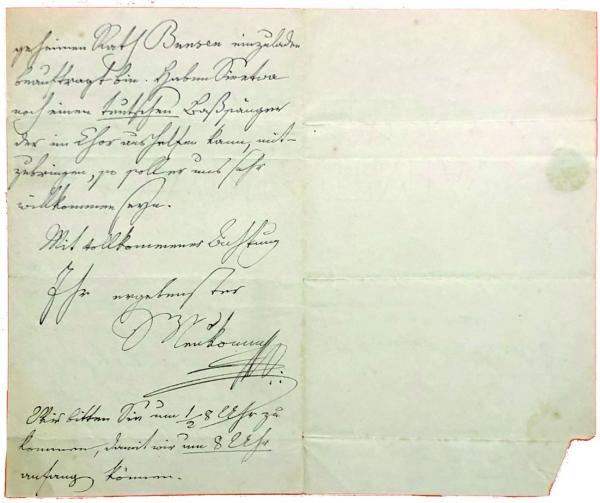 geheimen Rath Bunsen einzuladen
beauftragt bin. Haben Sie etwa
noch einen teutschen Baßsänger
der im Chor aushelfen kann, mit-
zubringen, so soll er uns sehr
willkommen seyn.
Mit vollkommener Achtung
Ihr ergebenster
Neukomm
Wir bitten Sie um 1/2 8 Uhr zu
kommen, damit wir um 8 Uhr
anfangen können.